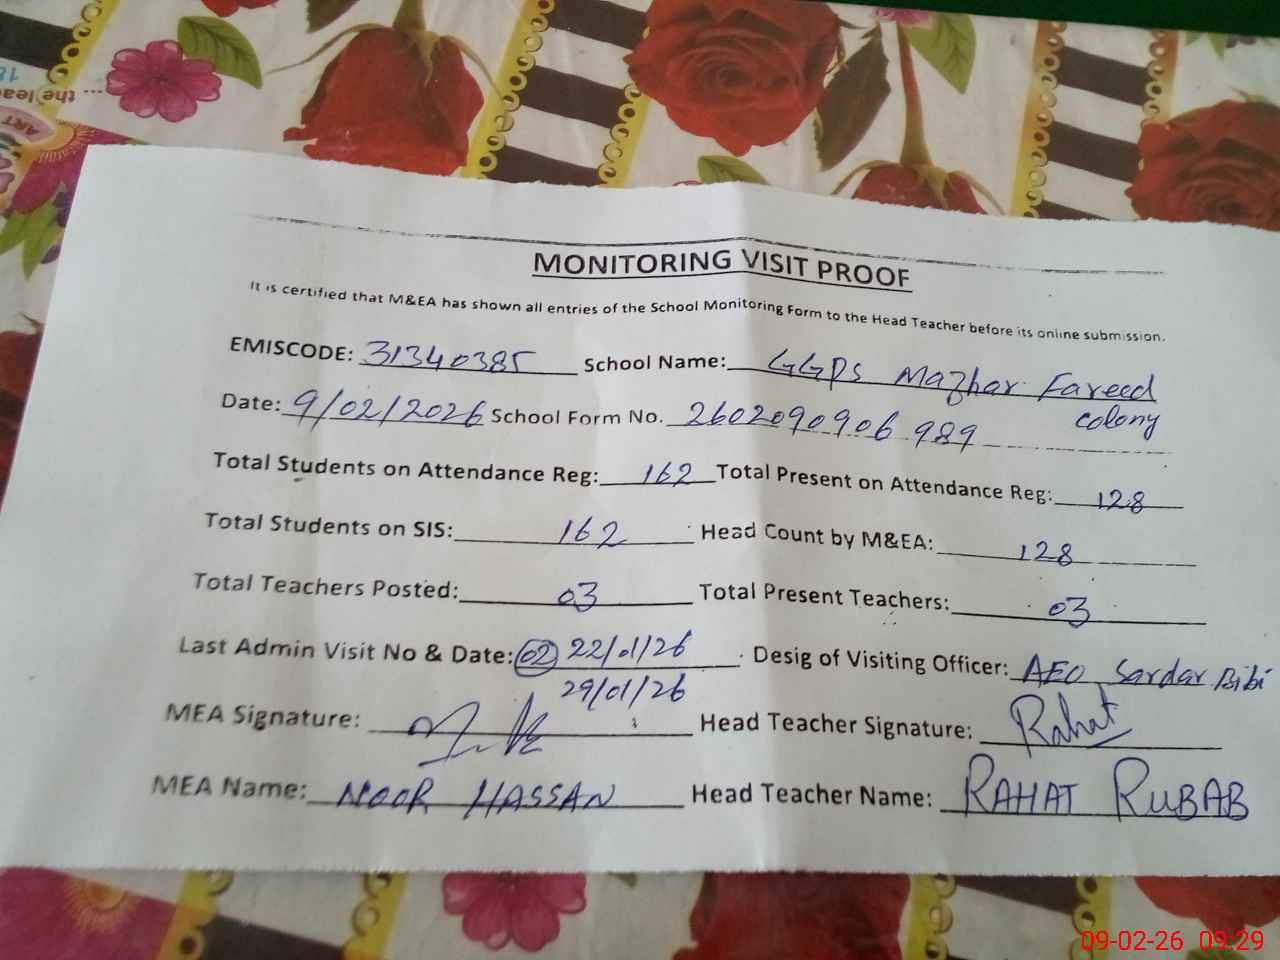 ... the lea
ART
MONITORING VISIT PROOF
It is certified that M&EA has shown all entries of the School Monitoring Form to the Head Teacher before its online submission.
EMISCODE: 31340385 School Name: GGPS Mazhar Fareed
colony
Date: 9/02/2026 School Form No. 2602090906989
Total Students on Attendance Reg: 162 Total Present on Attendance Reg: 128
Total Students on SIS: 162 Head Count by M&EA: 128
Total Teachers Posted: 03 Total Present Teachers: 03
Last Admin Visit No & Date: 02 22/01/26 Desig of Visiting Officer: AEO Sardar Bibi
29/01/26
MEA Signature: Head Teacher Signature: Rahat
MEA Name: NOOR HASSAN Head Teacher Name: RAHAT RUBAB
09-02-26 09:29